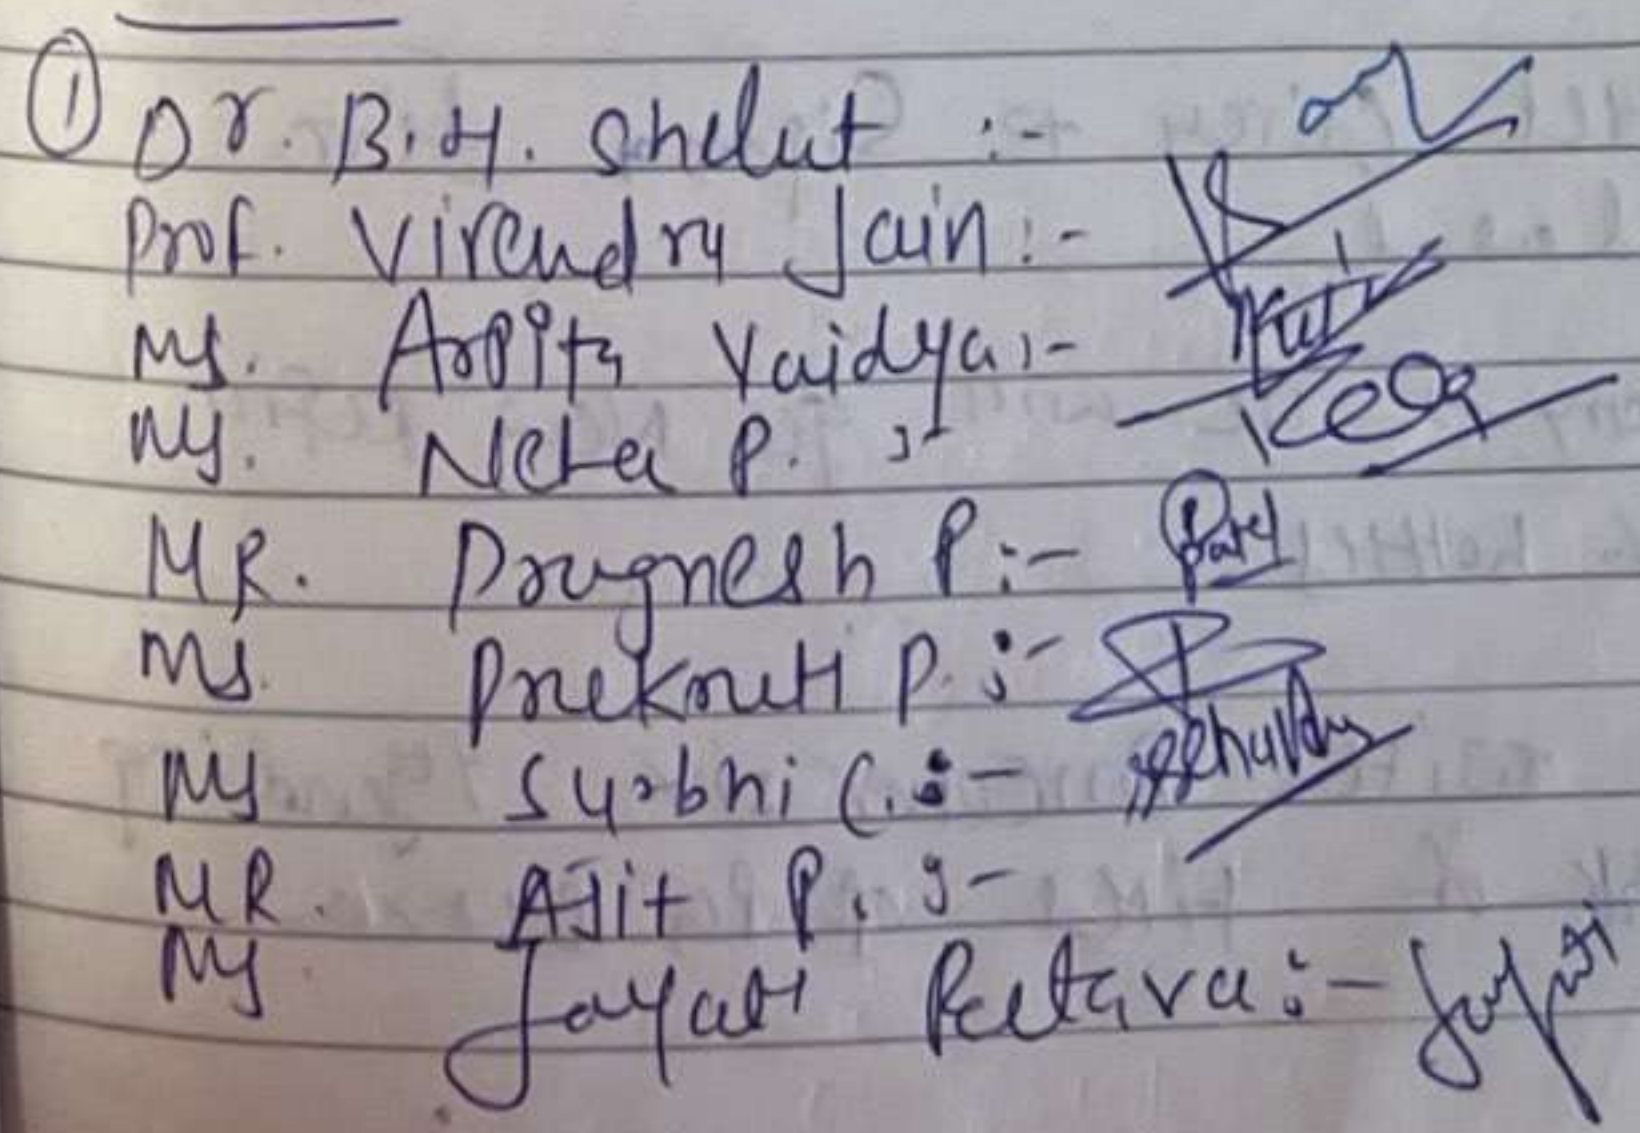 ① Dr. B.H. Shelut :-
Prof. Virendra Jain :-
Ms. Arpita Vaidya :-
Ms. Neha P. :-
MR. Dragnesh P. :- Patel
Ms. Prekruti P. :-
Ms Surbhi C. :-
MR. Ajit P. :-
Ms Jayati :- Jayati